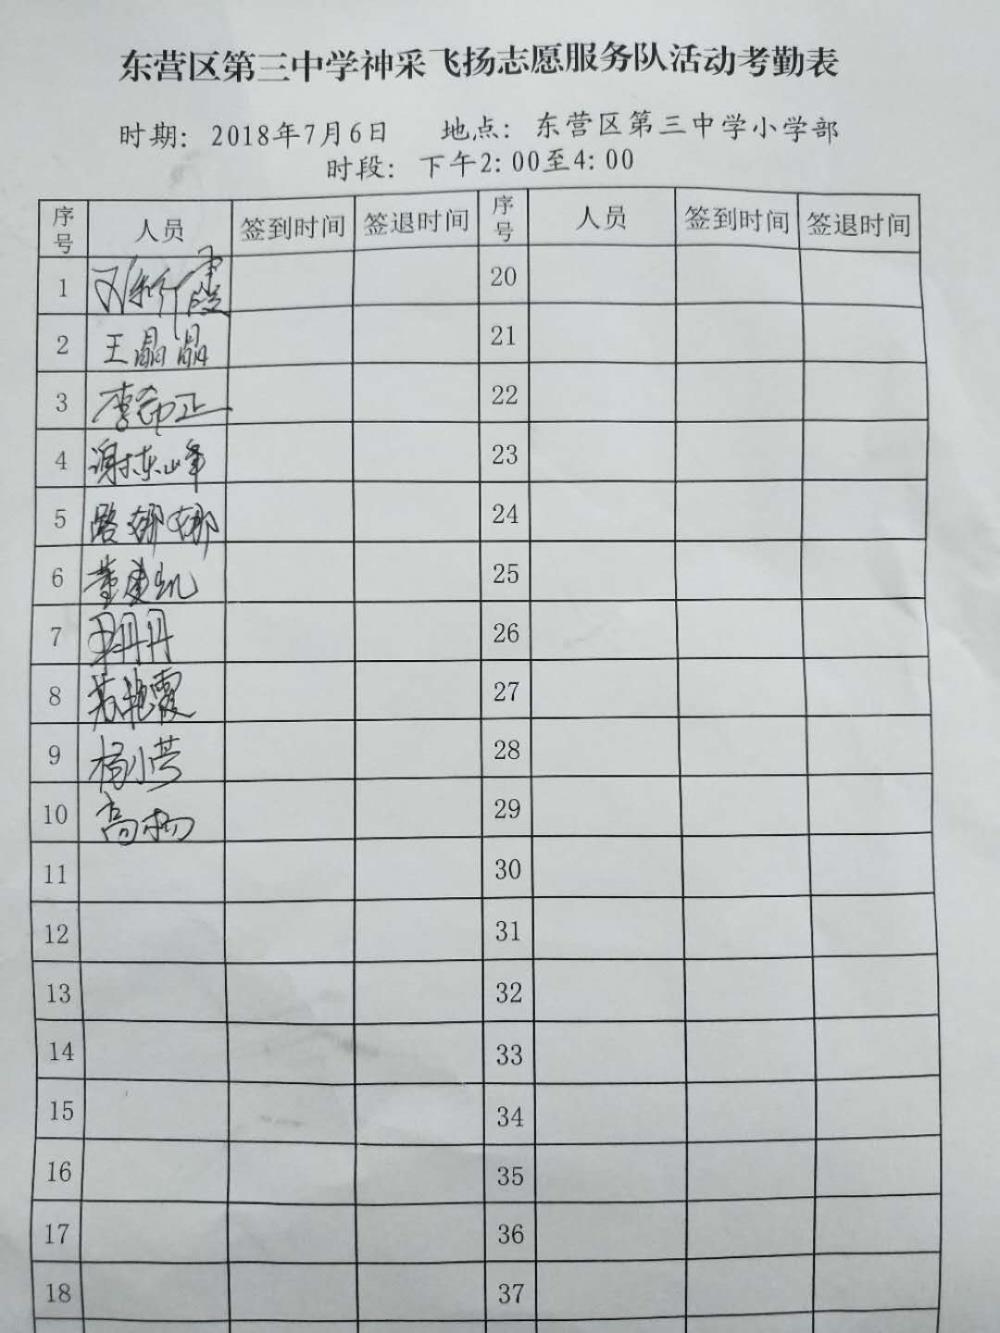 东营区第三中学神采飞扬志愿服务队活动考勤表
时期：2018年7月6日 地点：东营区第三中学小学部
时段：下午2：00至4：00
序号 人员 签到时间 签退时间 序号 人员 签到时间 签退时间
1 20
2 王晶晶 21
3 22
4 谢栋峰 23
5 路娜娜 24
6 董建凯 25
7 丹丹 26
8 苏艳霞 27
9 杨小芳 28
10 高杨 29
11 30
12 31
13 32
14 33
15 34
16 35
17 36
18 37